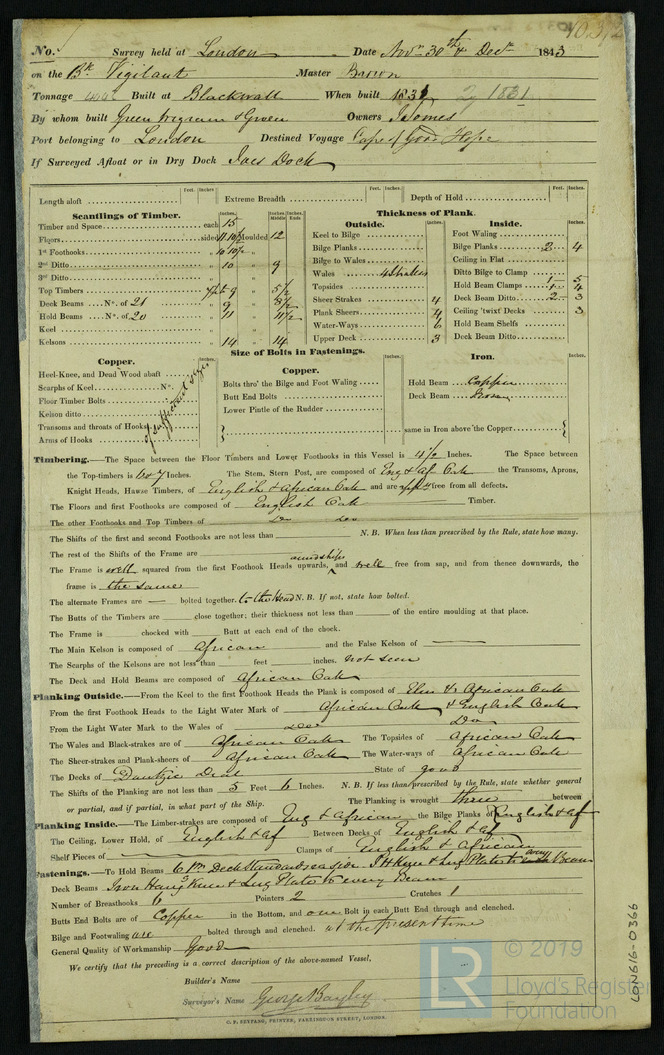 No. Survey held at London Date Novr 30th & Decr 1843
on the Bk Vigilant Master
Tonnage Built at Blackwall When built 1831 1831
By whom built Green Wigram & Green Owners J Somes
Port belonging to London Destined Voyage Cape of Good Hope
If Surveyed Afloat or in Dry Dock Dock
Length aloft Feet. Inches. Extreme Breadth Feet. Inches. Depth of Hold Feet. Inches.
Scantlings of Timber. Inches. Inches. Inches. Middle Ends
Timber and Space each 15
Floors sided 11 10½ moulded 12
1st Foothooks „ 10½ „
2nd Ditto „ 10 „ 9
3rd Ditto „ „
Top Timbers 9 „ 5½
Deck Beams No. of 21 „ 9 „ 8½
Hold Beams No. of 20 „ 11 „ 11½
Keel „ „
Kelsons „ 14 „ 14
Thickness of Plank.
Outside. Inches.
Keel to Bilge
Bilge Planks
Bilge to Wales
Wales 4 Strakes
Topsides
Sheer Strakes 4
Plank Sheers 4
Water-Ways 6
Upper Deck 3
Inside. Inches.
Foot Waling
Bilge Planks 2 4
Ceiling in Flat
Ditto Bilge to Clamp 1 5
Hold Beam Clamps 1 4
Deck Beam Ditto 2 3
Ceiling 'twixt Decks 3
Hold Beam Shelfs
Deck Beam Ditto
Size of Bolts in Fastenings.
Copper. Inches.
Heel-Knee, and Dead Wood abaft
Scarphs of Keel No.
Floor Timber Bolts
Kelson ditto
Transoms and throats of Hooks
Arms of Hooks
of sufficient size
Copper. Inches.
Bolts thro' the Bilge and Foot Waling
Butt End Bolts
Lower Pintle of the Rudder
Iron. Inches.
Hold Beam Copper
Deck Beam Iron
same in Iron above the Copper
Timbering.—The Space between the Floor Timbers and Lower Foothooks in this Vessel is 4½ Inches. The Space between
the Top-timbers is 6 & 7 Inches. The Stem, Stern Post, are composed of Eng & Af Oak the Transoms, Aprons,
Knight Heads, Hawse Timbers, of English & African Oak and are free from all defects.
The Floors and first Foothooks are composed of English Oak Timber.
The other Foothooks and Top Timbers of Do Do
The Shifts of the first and second Foothooks are not less than N.B. When less than prescribed by the Rule, state how many.
The rest of the Shifts of the Frame are
The Frame is well squared from the first Foothook Heads upwards, amidships and well free from sap, and from thence downwards, the
frame is the same
The alternate Frames are — bolted together. to the Head N.B. If not, state how bolted.
The Butts of the Timbers are close together; their thickness not less than of the entire moulding at that place.
The Frame is chocked with Butt at each end of the chock.
The Main Kelson is composed of African and the False Kelson of —
The Scarphs of the Kelsons are not less than feet inches. not seen
The Deck and Hold Beams are composed of African Oak
Planking Outside.—From the Keel to the first Foothook Heads the Plank is composed of Elm & African Oak
From the first Foothook Heads to the Light Water Mark of African Oak & English Oak
From the Light Water Mark to the Wales of Do Do
The Wales and Black-strakes are of African Oak The Topsides of African Oak
The Sheer-strakes and Plank-sheers of African Oak The Water-ways of African Oak
The Decks of Dantzic Deal State of good
The Shifts of the Planking are not less than 5 Feet 6 Inches. N.B. If less than prescribed by the Rule, state whether general
or partial, and if partial, in what part of the Ship. The Planking is wrought three between
Planking Inside.—The Limber-strakes are composed of Eng & African, the Bilge Planks of English & Af
The Ceiling, Lower Hold, of English & Af Between Decks of English & Af
Shelf Pieces of — Clamps of English & African
Fastenings.—To Hold Beams 6 Pr Deck Standards a side. I H Knee & Lug Plates to every Beam
Deck Beams Iron Hang Knee & Lug Plate to every Beam
Number of Breasthooks 6 Pointers 2 Crutches 1
Butts End Bolts are of Copper in the Bottom, and one Bolt in each Butt End through and clenched.
Bilge and Footwaling are bolted through and clenched. at the present time
General Quality of Workmanship Good
We certify that the preceding is a correct description of the above-named Vessel,
Builder's Name
Surveyor's Name George Bayley
C. F. SEYFANG, PRINTER, FARRINGDON STREET, LONDON.
LON616-0366
LR © 2019
Lloyd's Register
Foundation